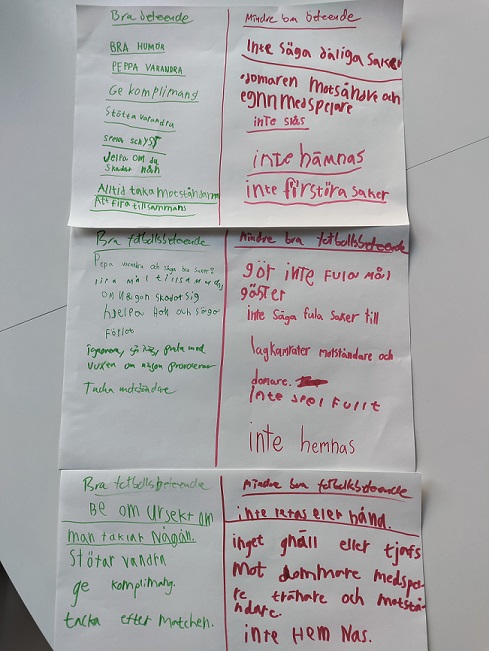 Bra beteende
BRA HUMOR
PEPPA VARANDRA
Ge komplimang
Stötta varandra
spela schysst
Jelpa om du
skadat nån
Alltid taka motståndarna
Att fira tillsammans
Mindre bra beteende
Inte säga dåliga saker
domaren motståndre och
egnn medspelare
inte slås
inte hämnas
inte förstöra saker
Bra fotbollsbeteende
Pepa varandra och säga bra saker?
fira mål tillsamands
om någon skadat sig
hjelpa Hon och säga
Förlot
ignorera, gå iväg, prata med
vuxen om någon provoserar
Tacka motståndare
Mindre bra fotbollsbeteende
gör inte FULA MÅL
gäster
inte säga fula saker till
lagkamrater motståndare och
domare.
Inte spel Fullt
inte hemnas
Bra fotbollsbeteende
Be om ursekt om
man taklat Någån.
Stötar vandra
ge komplimang.
tacka efter Matchen.
Mindre bra fotbollsbeteende
inte retas eler håna.
inget gnäll eller tjafs
Mot dommare medspe-
re, tränare och motstå-
ndare.
inte Hem Nas.